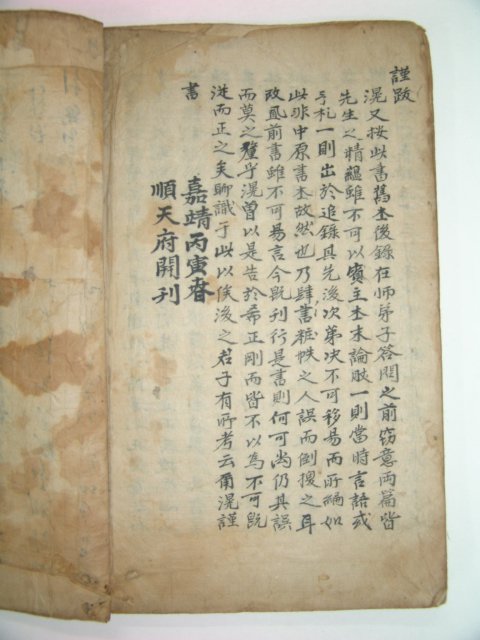 謹跋
滉又按此書舊本後錄在师弟子答問之前竊意兩篇皆
先生之精蘊雖不可以賓主本末論然一則當時言語或
手札一則出於追錄其先後次第决不可移易而所編如
此非中原書本故然也乃肆書粧帙之人誤而倒換之耳
改風前書雖不可易言今旣刊行是書則何可尚仍其誤
而莫之釐乎滉曾以是告於希正剛而皆不以為不可旣
從而正之矣聊識于此以俟後之君子有所考云甭滉謹
書
嘉靖丙寅春
順天府開刊